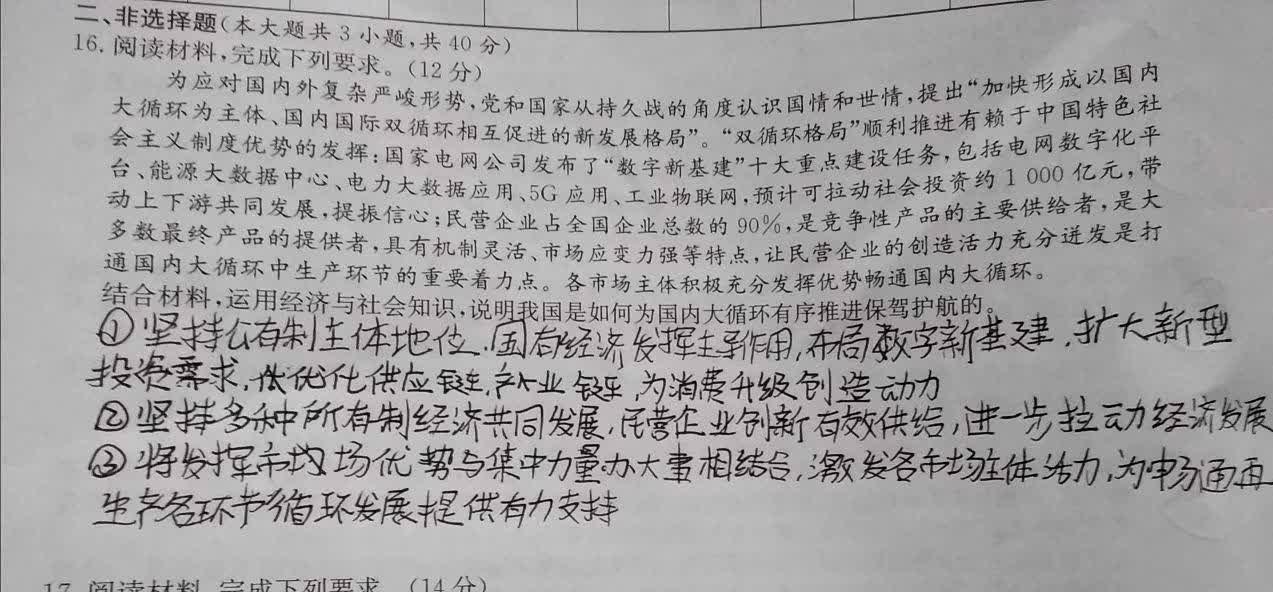 二、非选择题(本大题共3小题,共40分)
16. 阅读材料,完成下列要求。(12分)
为应对国内外复杂严峻形势,党和国家从持久战的角度认识国情和世情,提出“加快形成以国内
大循环为主体、国内国际双循环相互促进的新发展格局”。“双循环格局”顺利推进有赖于中国特色社
会主义制度优势的发挥:国家电网公司发布了“数字新基建”十大重点建设任务,包括电网数字化平
台、能源大数据中心、电力大数据应用、5G应用、工业物联网,预计可拉动社会投资约1 000亿元,带
动上下游共同发展,提振信心;民营企业占全国企业总数的90%,是竞争性产品的主要供给者,是大
多数最终产品的提供者,具有机制灵活、市场应变力强等特点,让民营企业的创造活力充分迸发是打
通国内大循环中生产环节的重要着力点。各市场主体积极充分发挥优势畅通国内大循环。
结合材料,运用经济与社会知识,说明我国是如何为国内大循环有序推进保驾护航的。
①坚持公有制主体地位.国有经济发挥主导作用,布局数字新基建,扩大新型
投资需求,优化供应链,产业链,为消费升级创造动力
②坚持多种所有制经济共同发展,民营企业创新有效供给,进一步拉动经济发展
③将发挥市场优势与集中力量办大事相结合,激发各市场主体活力,为畅通再
生产各环节循环发展提供有力支持
17. 阅读材料,完成下列要求。(14分)